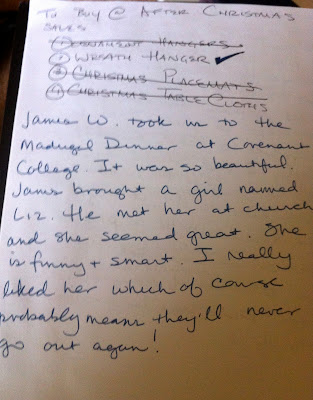 To Buy @ After Christmas
Sales
① Ornament Hangers
② Wreath Hanger ✓
③ Christmas Placemats
④ Christmas Table Cloths
James W. took us to the
Madrigal Dinner at Covenant
College. It was so beautiful.
James brought a girl named
Liz. He met her at church
and she seemed great. She
is funny + smart. I really
liked her which of course
probably means they'll never
go out again!